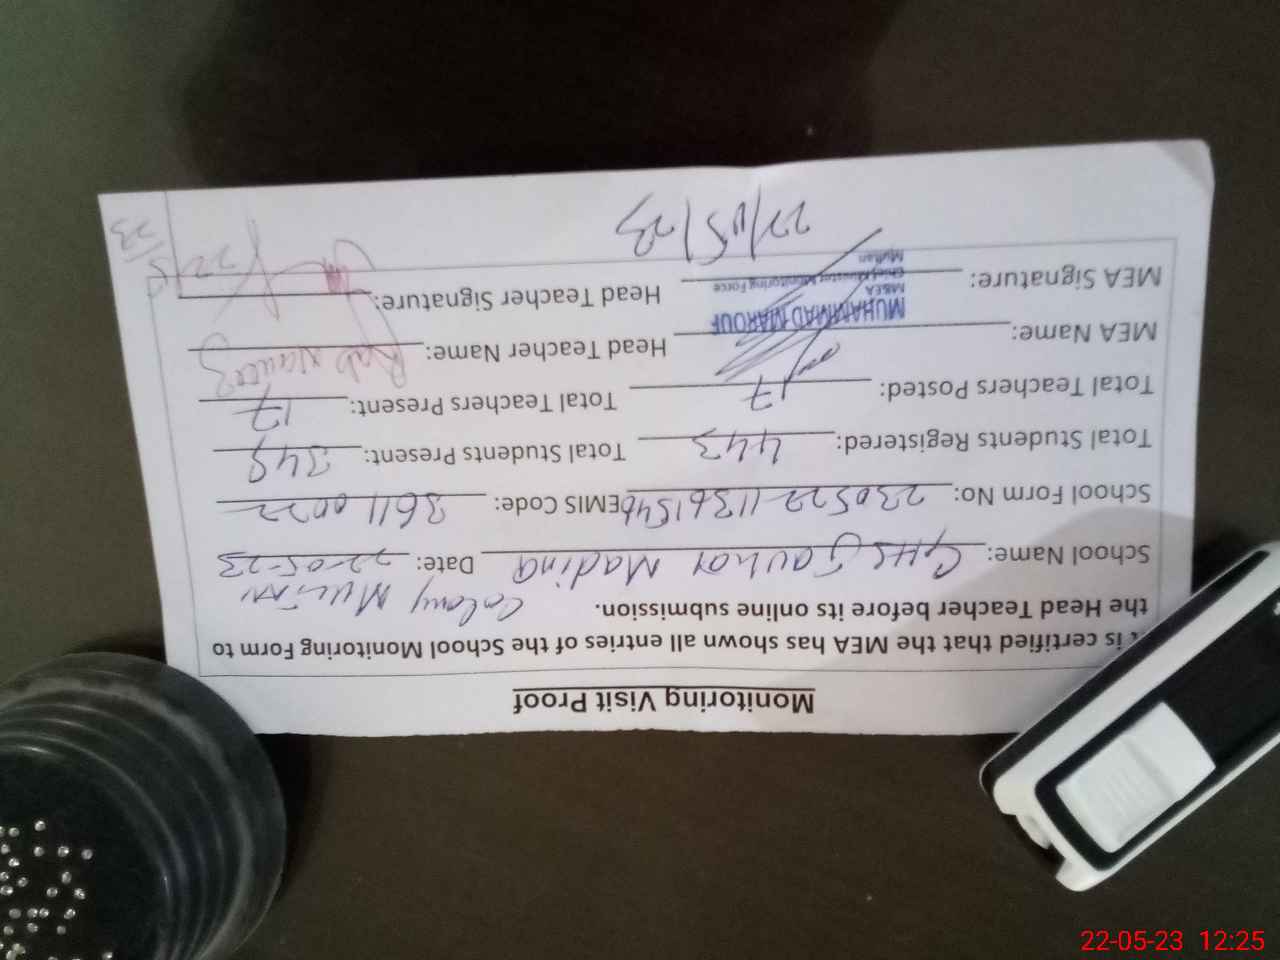 Monitoring Visit Proof
It is certified that the MEA has shown all entries of the School Monitoring Form to
the Head Teacher before its online submission. Colony Multan
School Name: GHS Gauhar Madina Date: 22-05-23
School Form No: EMIS Code: 36110022
Total Students Registered: 443 Total Students Present: 349
Total Teachers Posted: 17 Total Teachers Present: 17
MEA Name: MUHAMMAD MAROUF Head Teacher Name:
MEA Signature: Head Teacher Signature:
M&EA
Chief Minister Monitoring Force
Multan
22/05/23
22/5
23
22-05-23 12:25